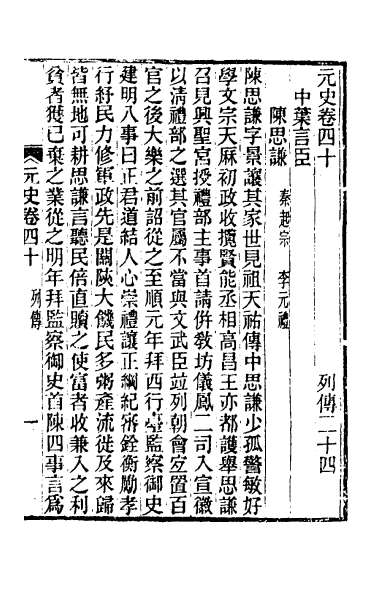 元史卷四十　列傳二十四
中葉言臣
陳思謙　蔡趙宗　李元禮
陳思謙字景讓其家世見祖天祐傳中思謙少孤警敏好
學文宗天麻初政收攬賢能丞相高昌王亦都護舉思謙
召見興聖宮授禮部主事首請併敎坊儀鳳二司入宣徽
以清禮部之選其官屬不當與文武臣竝列朝會宜置百
官之後大樂之前詔從之至順元年拜西行臺監察御史
建明八事曰正君道結人心崇禮讓正綱紀審銓衡勵孝
行紓民力修軍政先是關陝大饑民多粥產流徙及來歸
皆無地可耕思謙言聽民倍直贖之使富者收兼入之利
貧者獲已棄之業從之明年拜監察御史首陳四事言爲
元史卷四十　列傳　一